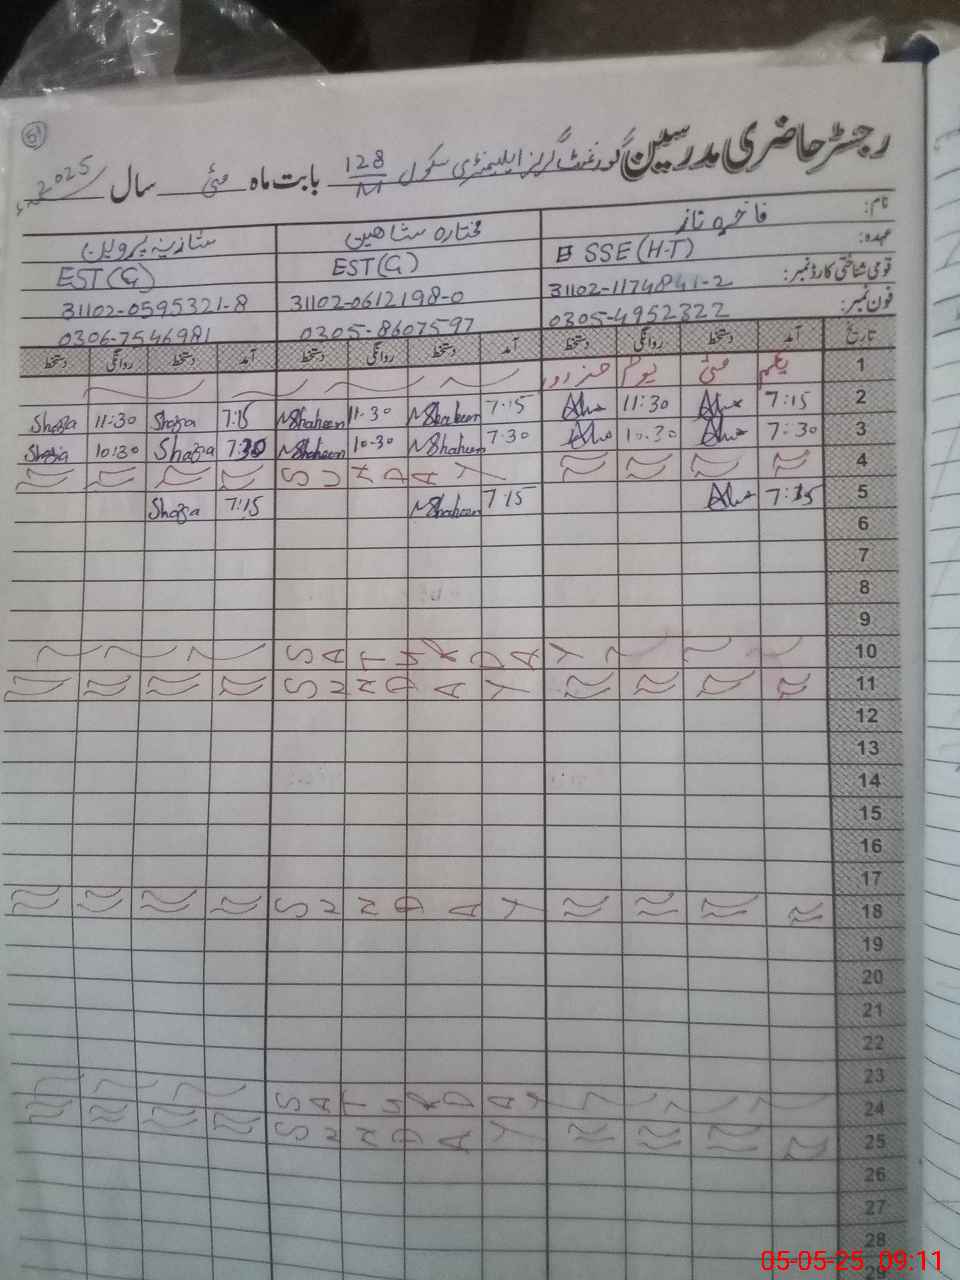 51
رجسٹر حاضری مدرسین گورنمنٹ گرلز ایلیمنٹری سکول 128/M بابت ماہ مئی سال 2025ء
نام: فاخرہ ناز مختارہ شاھین شازیہ پروین
عہدہ: SSE (H-T) EST(G) EST(G)
قومی شناختی کارڈ نمبر: 31102-1174841-2 31102-0612198-0 31102-0595321-8
فون نمبر: 0305-4952322 0305-8607597 0306-7546981
تاریخ آمد دستخط روانگی دستخط آمد دستخط روانگی دستخط آمد دستخط روانگی دستخط
1 یکم مئی یوم مزدور
2 7:15 11:30 7:15 MShaheen 11:30 MShaheen 7:15 Shazia 11:30 Shazia
3 7:30 10:30 7:30 MShaheen 10:30 MShaheen 7:30 Shazia 10:30 Shazia
4 SUNDAY
5 7:15 7:15 MShaheen 7:15 Shazia
6
7
8
9
10 SATURDAY
11 SUNDAY
12
13
14
15
16
17
18 SUNDAY
19
20
21
22
23
24 SATURDAY
25 SUNDAY
26
27
28
29
05-05-25 09:11